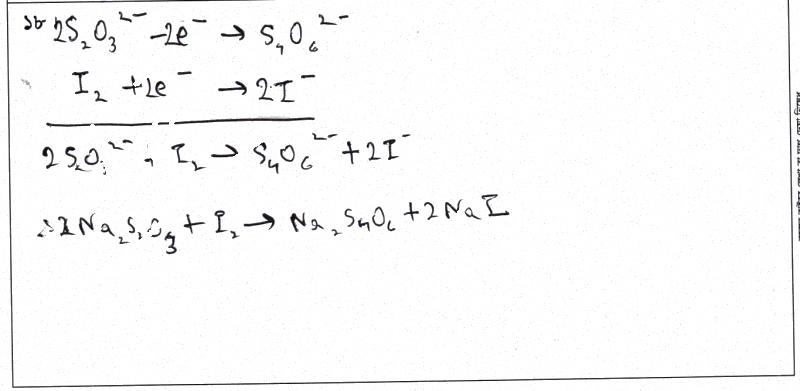 ১৮ 2S₂O₃²⁻ -2e⁻ → S₄O₆²⁻
I₂ +2e⁻ → 2I⁻
2S₂O₃²⁻ + I₂ → S₄O₆²⁻ + 2I⁻
∴ 2Na₂S₂O₃ + I₂ → Na₂S₄O₆ + 2NaI